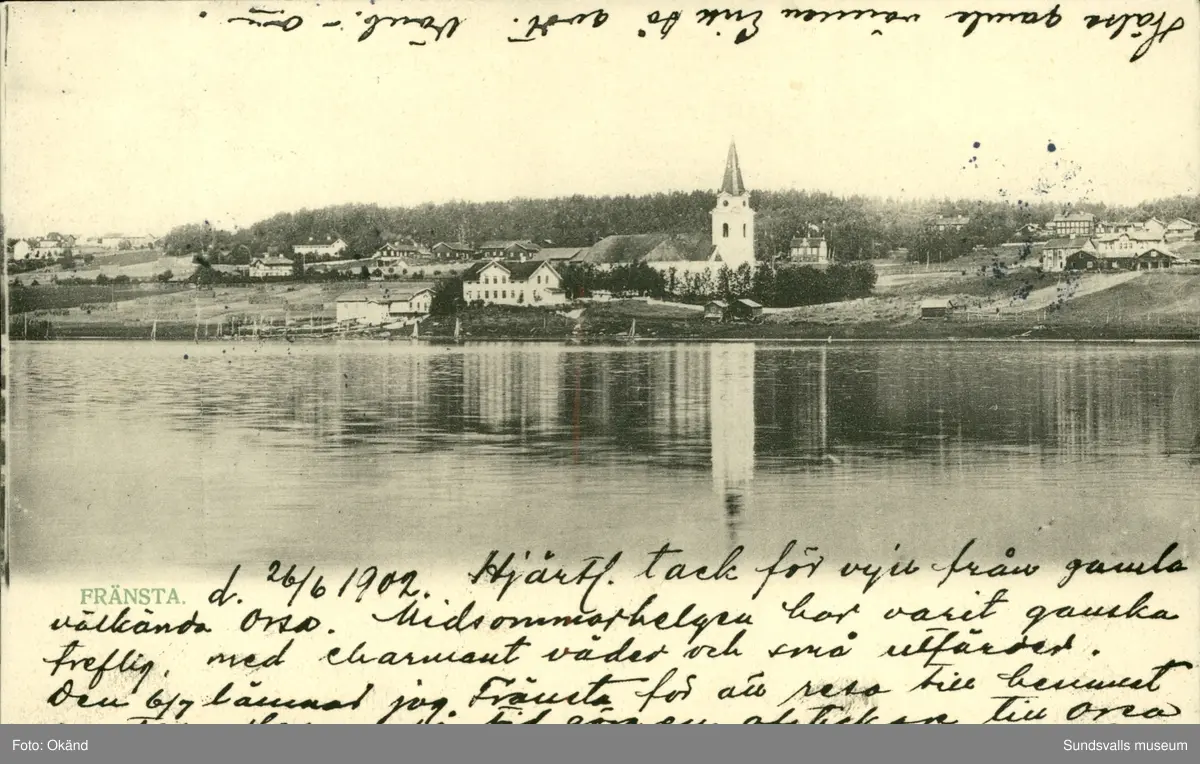 Hälsa gamla vännen Erik så godt.
FRÄNSTA. d. 26/6 1902. Hjärtl. tack för vyn från gamla
välkända Orsa. Midsommarhelgen har varit ganska
treflig, med charmant väder och små utfärder.
Den 6/7 lämnar jag Fränsta för att resa till hemmet
till Orsa
Foto: Okänd
Sundsvalls museum